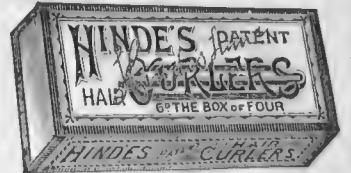 HINDE'S PATENT
HAIR CURLERS
6D THE BOX OF FOUR
HINDES PATENT HAIR
CURLERS.